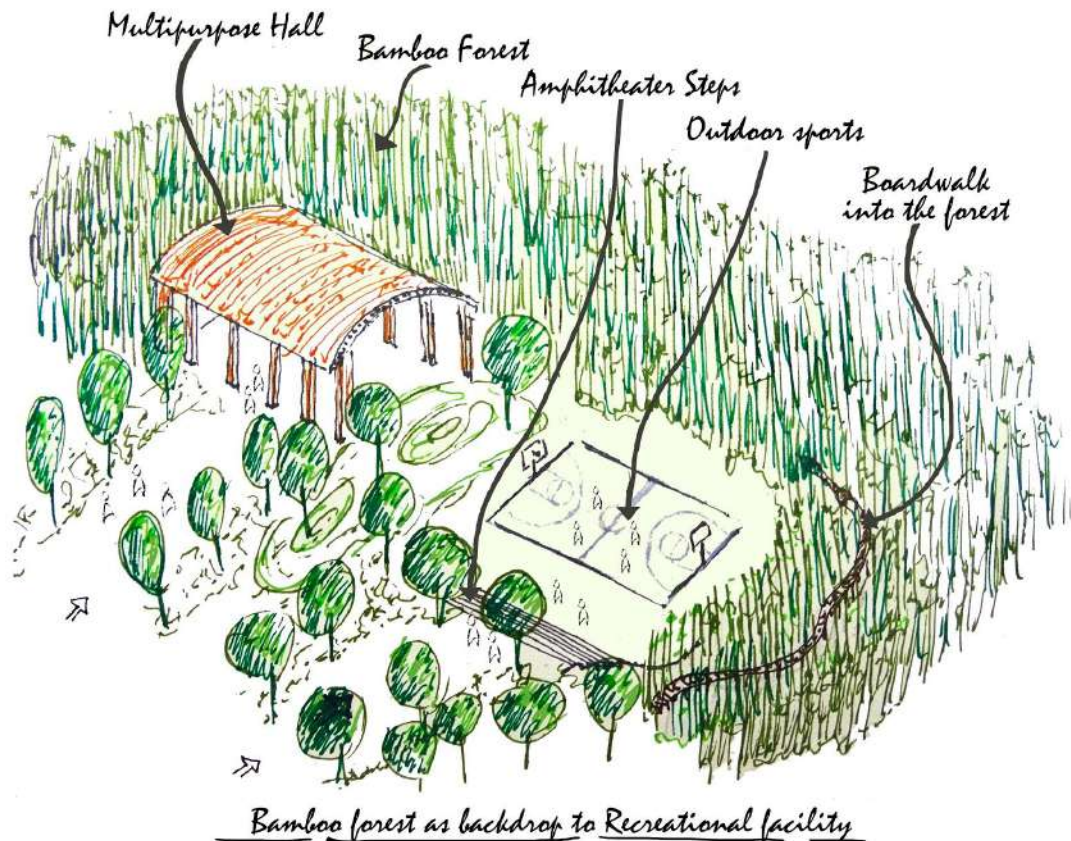 Multipurpose Hall
Bamboo Forest
Amphitheater Steps
Outdoor sports
Boardwalk
into the forest
Bamboo forest as backdrop to Recreational facility